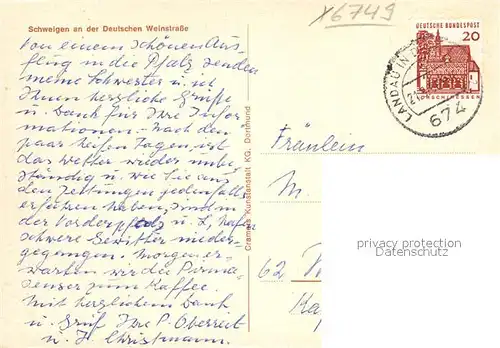 X6749
Schweigen an der Deutschen Weinstraße
Von einem schönen Aus-
flug in die Pfalz senden
meine Schwester u. ich
Ihnen herzliche Grüße
u. Dank für Ihre Infor
mationen. - Nach den
paar heißen Tagen ist
das Wetter wieder unbe
ständig u. wie Sie aus
den Zeitungen jedenfalls
erfahren haben, sind in
der Vorderpfalz u. L. Hafen
schwere Gewitter nieder-
gegangen. Morgen er-
warten wir die Pirma-
senser zum Kaffee.
Mit herzlichem Dank
u. Gruß Ihre P. Oberreit
u. H. Christmann.
Cramers Kunstanstalt KG, Dortmund
DEUTSCHE BUNDESPOST
20
LORSCH/HESSEN
LANDAU IN
674
Fräulein
M.
privacy protection
Datenschutz
62